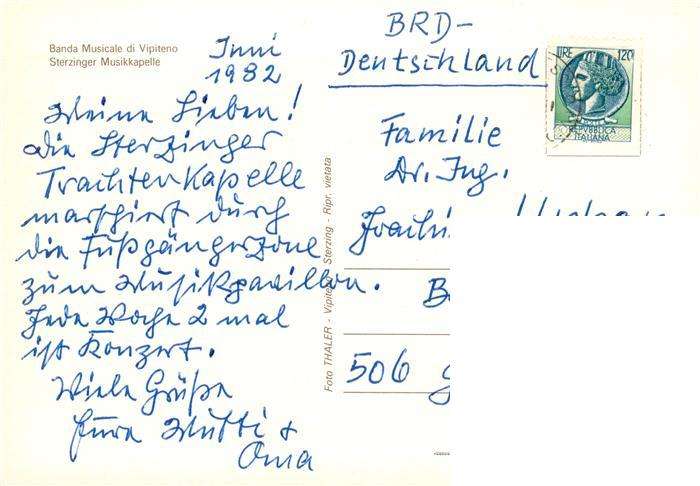 Banda Musicale di Vipiteno
Sterzinger Musikkapelle
Juni
1982
Meine Lieben!
Die Sterzinger
Trachtenkapelle
marschiert durch
die Fußgängerzone
zum Musikpavillon.
Jede Woche 2 mal
ist Konzert.
Viele Grüße
Eure Mutti +
Oma
Foto THALER - Vipiteno - Sterzing - Ripr. vietata
BRD-
Deutschland
LIRE 120
REPVBBLICA
ITALIANA
Familie
Dr. Ing.
506